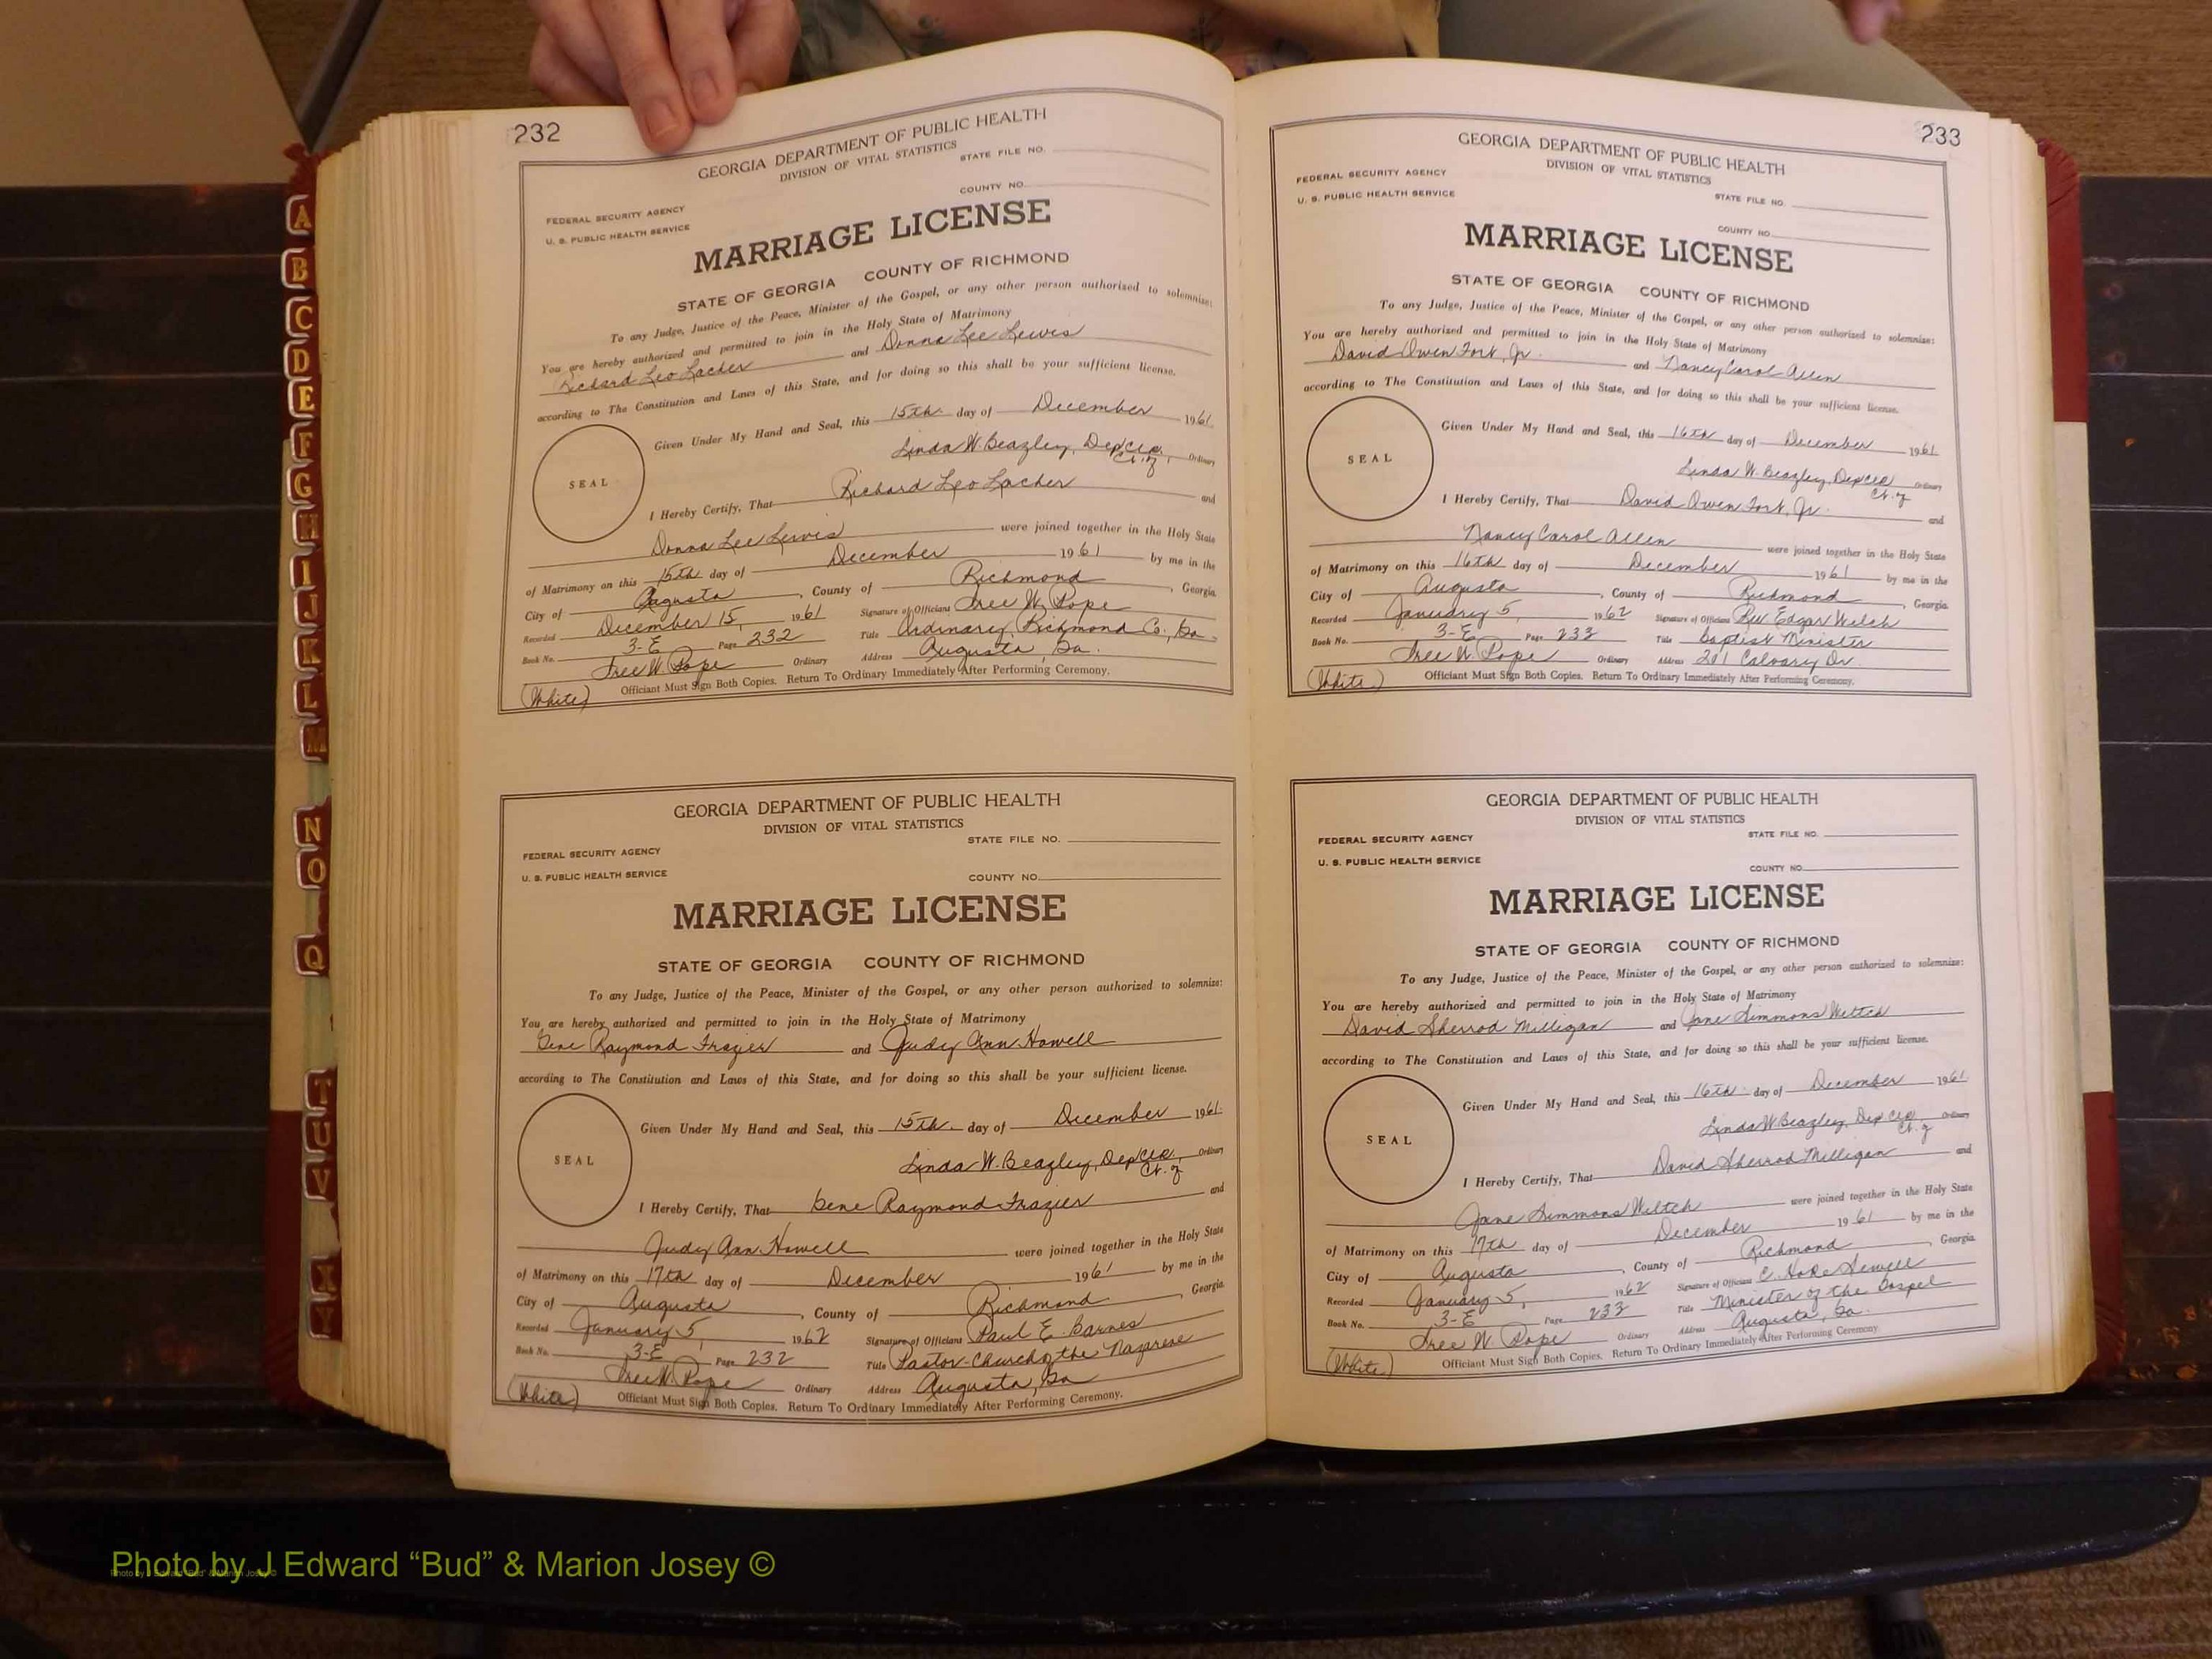 232
GEORGIA DEPARTMENT OF PUBLIC HEALTH
DIVISION OF VITAL STATISTICS
STATE FILE NO.
COUNTY NO.
FEDERAL SECURITY AGENCY
U. S. PUBLIC HEALTH SERVICE
MARRIAGE LICENSE
STATE OF GEORGIA COUNTY OF RICHMOND
To any Judge, Justice of the Peace, Minister of the Gospel, or any other person authorized to solemnize:
You are hereby authorized and permitted to join in the Holy State of Matrimony
Richard Leo Lacher and Donna Lee Lewis
according to The Constitution and Laws of this State, and for doing so this shall be your sufficient license.
Given Under My Hand and Seal, this 15th day of December 1961
Linda W. Beazley, Dep Clk, Ordinary
Ct. of
SEAL
I Hereby Certify, That Richard Leo Lacher and
Donna Lee Lewis were joined together in the Holy State
of Matrimony on this 15th day of December 1961 by me in the
City of Augusta, County of Richmond, Georgia.
Recorded December 15, 1961 Signature of Officiant Tree W. Pope
Book No. 3-E Page 232 Title Ordinary, Richmond Co., Ga.
Tree W. Pope Ordinary Address Augusta, Ga.
(White) Officiant Must Sign Both Copies. Return To Ordinary Immediately After Performing Ceremony.
GEORGIA DEPARTMENT OF PUBLIC HEALTH
DIVISION OF VITAL STATISTICS
STATE FILE NO.
FEDERAL SECURITY AGENCY
U. S. PUBLIC HEALTH SERVICE
COUNTY NO.
MARRIAGE LICENSE
STATE OF GEORGIA COUNTY OF RICHMOND
To any Judge, Justice of the Peace, Minister of the Gospel, or any other person authorized to solemnize:
You are hereby authorized and permitted to join in the Holy State of Matrimony
Gene Raymond Frazier and Judy Ann Howell
according to The Constitution and Laws of this State, and for doing so this shall be your sufficient license.
Given Under My Hand and Seal, this 15th day of December 1961
Linda W. Beazley, Dep Clk, Ordinary
Ct. of
SEAL
I Hereby Certify, That Gene Raymond Frazier and
Judy Ann Howell were joined together in the Holy State
of Matrimony on this 17th day of December 1961 by me in the
City of Augusta, County of Richmond, Georgia.
Recorded January 5, 1962 Signature of Officiant Paul E. Barnes
Book No. 3-E Page 232 Title Pastor-Church of the Nazarene
Tree W. Pope Ordinary Address Augusta, Ga
(White) Officiant Must Sign Both Copies. Return To Ordinary Immediately After Performing Ceremony.
233
GEORGIA DEPARTMENT OF PUBLIC HEALTH
DIVISION OF VITAL STATISTICS
FEDERAL SECURITY AGENCY
U. S. PUBLIC HEALTH SERVICE
STATE FILE NO.
COUNTY NO.
MARRIAGE LICENSE
STATE OF GEORGIA COUNTY OF RICHMOND
To any Judge, Justice of the Peace, Minister of the Gospel, or any other person authorized to solemnize:
You are hereby authorized and permitted to join in the Holy State of Matrimony
David Owen Fort, Jr. and Nancy Carol Allen
according to The Constitution and Laws of this State, and for doing so this shall be your sufficient license.
Given Under My Hand and Seal, this 16th day of December 1961
Linda W. Beazley, Dep Clk Ordinary
Ct. of
SEAL
I Hereby Certify, That David Owen Fort, Jr. and
Nancy Carol Allen were joined together in the Holy State
of Matrimony on this 16th day of December 1961 by me in the
City of Augusta, County of Richmond, Georgia.
Recorded January 5, 1962 Signature of Officiant Rev Edgar Welch
Book No. 3-E Page 233 Title Baptist Minister
Tree W. Pope Ordinary Address 201 Calvary Dr.
(White) Officiant Must Sign Both Copies. Return To Ordinary Immediately After Performing Ceremony.
GEORGIA DEPARTMENT OF PUBLIC HEALTH
DIVISION OF VITAL STATISTICS
STATE FILE NO.
FEDERAL SECURITY AGENCY
U. S. PUBLIC HEALTH SERVICE
COUNTY NO.
MARRIAGE LICENSE
STATE OF GEORGIA COUNTY OF RICHMOND
To any Judge, Justice of the Peace, Minister of the Gospel, or any other person authorized to solemnize:
You are hereby authorized and permitted to join in the Holy State of Matrimony
David Sherrod Milligan and Jane Simmons Wiltch
according to The Constitution and Laws of this State, and for doing so this shall be your sufficient license.
Given Under My Hand and Seal, this 16th day of December 1961
Linda W Beazley, Dep Clk Ordinary
Ct. of
SEAL
I Hereby Certify, That David Sherrod Milligan and
Jane Simmons Wiltch were joined together in the Holy State
of Matrimony on this 17th day of December 1961 by me in the
City of Augusta, County of Richmond, Georgia.
Recorded January 5, 1962 Signature of Officiant C. Sewell
Book No. 3-E Page 233 Title Minister of the Gospel
Tree W. Pope Ordinary Address Augusta, Ga.
(White) Officiant Must Sign Both Copies. Return To Ordinary Immediately After Performing Ceremony.
A
B
C
D
E
F
G
H
I
J
K
L
M
N
O
Q
T
U
V
X
Y
Photo by J Edward “Bud” & Marion Josey ©
Photo by J Edward “Bud” & Marion Josey ©